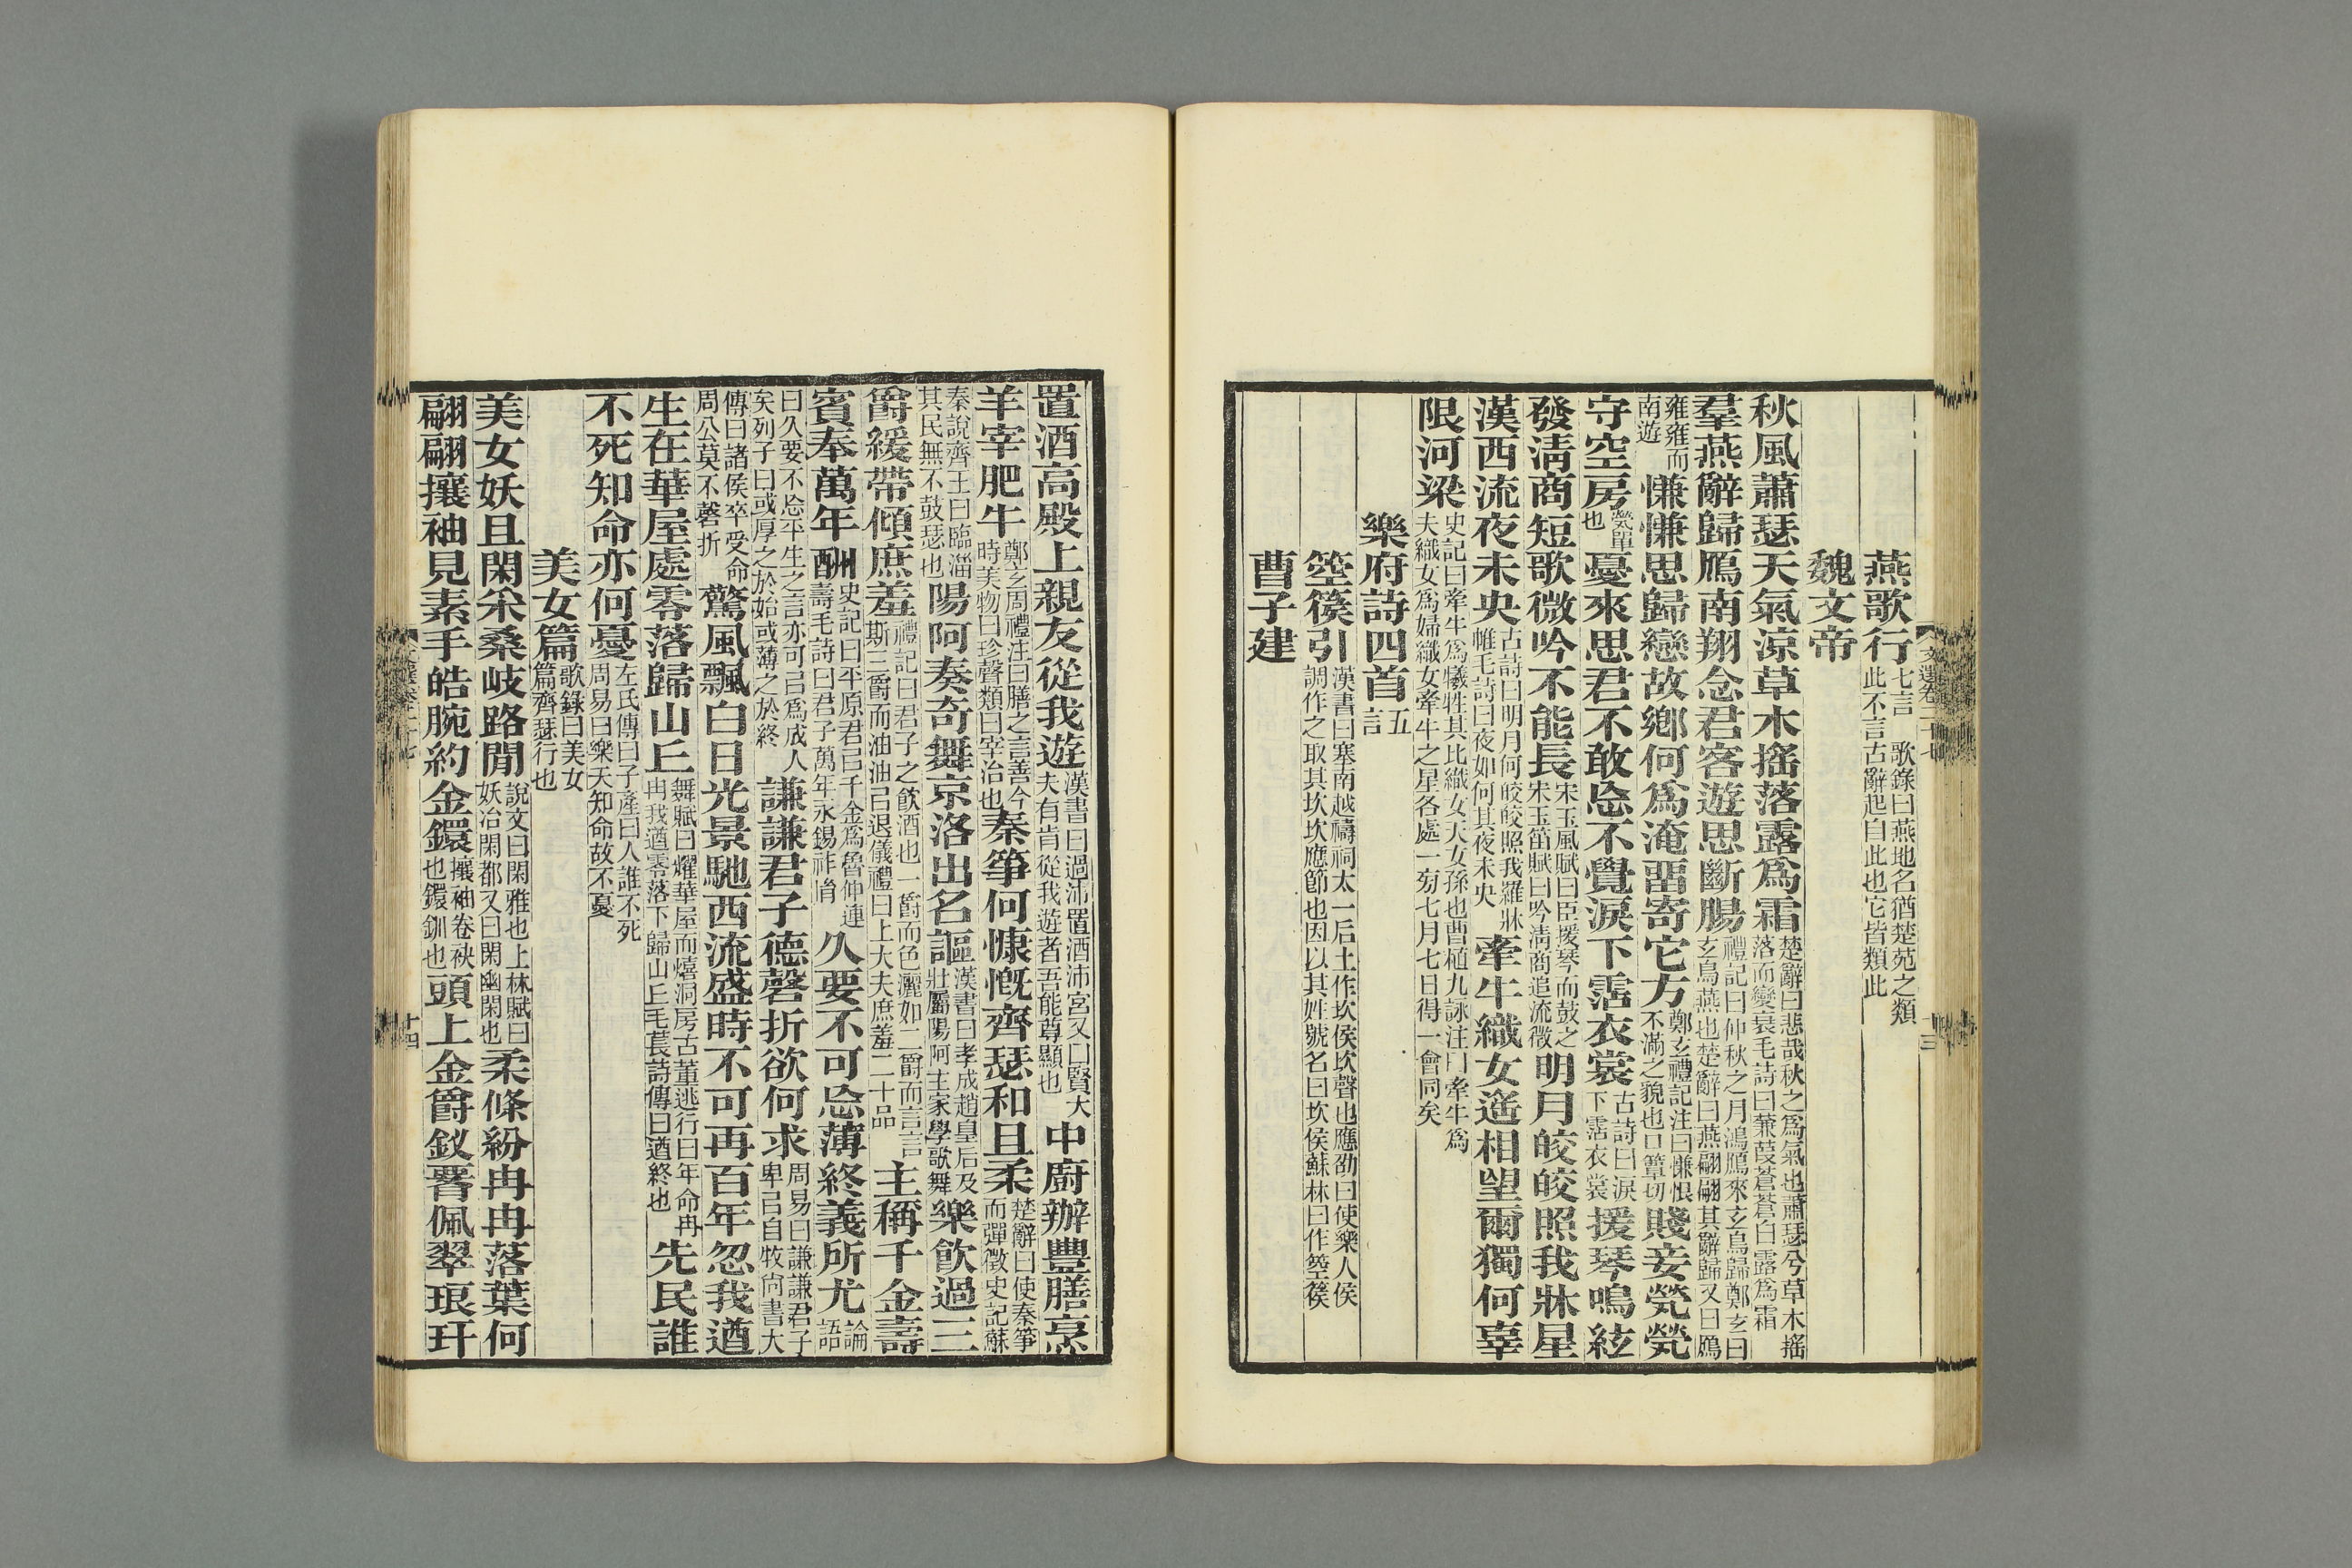 燕歌行七言 歌錄曰燕地名猶楚苑之類此不言古辭起自此也它皆類此
魏文帝
秋風蕭瑟天氣涼草木搖落露為霜楚辭曰悲哉秋之為氣也蕭瑟兮草木搖落而變衰毛詩曰蒹葭蒼蒼白露為霜
羣燕辭歸鴈南翔念君客遊思斷腸禮記曰仲秋之月鴻鴈來玄鳥歸鄭玄曰玄鳥燕也楚辭曰燕翩翩其辭歸又曰鴈
雍雍而南遊慊慊思歸戀故鄉何為淹留寄它方鄭玄禮記注曰慊恨不滿之貌也口簟切賤妾煢煢
守空房煢單也憂來思君不敢忘不覺淚下霑衣裳古詩曰淚下霑衣裳援琴鳴絃
發清商短歌微吟不能長宋玉風賦曰臣援琴而鼓之宋玉笛賦曰吟清商追流徵明月皎皎照我牀星
漢西流夜未央古詩曰明月何皎皎照我羅牀帷毛詩曰夜如何其夜未央牽牛織女遙相望爾獨何辜
限河梁史記曰牽牛為犧牲其北織女天女孫也曹植九詠注曰牽牛為夫織女為婦織女牽牛之星各處一旁七月七日得一會同矣
樂府詩四首五言
箜篌引漢書曰塞南越禱祠太一后土作坎侯坎聲也應劭曰使樂人侯調作之取其坎坎應節也因以其姓號名曰坎侯蘇林曰作箜篌
曹子建
文選卷二十七
十三
置酒高殿上親友從我遊漢書曰過沛置酒沛宮又曰賢大夫有肯從我遊者吾能尊顯也中廚辦豐膳烹
羊宰肥牛鄭玄周禮注曰膳之言善今時美物曰珍聲類曰宰治也秦箏何慷慨齊瑟和且柔楚辭曰使秦箏而彈徵史記蘇
秦說齊王曰臨淄其民無不鼓瑟也陽阿奏奇舞京洛出名謳漢書曰孝成趙皇后及壯屬陽阿主家學歌舞樂飲過三
爵緩帶傾庶羞禮記曰君子之飲酒也一爵而色灑如二爵而言言斯三爵而油油已退儀禮曰上大夫庶羞二十品主稱千金壽
賓奉萬年酬史記曰平原君已千金為魯仲連壽毛詩曰君子萬年永錫祚胤久要不可忘薄終義所尤論語
曰久要不忘平生之言亦可已為成人矣列子曰或厚之於始或薄之於終謙謙君子德磬折欲何求周易曰謙謙君子卑已自牧尚書大
傳曰諸侯卒受命周公莫不磬折驚風飄白日光景馳西流盛時不可再百年忽我遒
生在華屋處零落歸山丘舞賦曰燿華屋而熺洞房古董逃行曰年命冉冉我遒零落下歸山丘毛萇詩傳曰遒終也先民誰
不死知命亦何憂左氏傳曰子產曰人誰不死周易曰樂天知命故不憂
美女篇歌錄曰美女篇齊瑟行也
美女妖且閑采桑岐路閒說文曰閑雅也上林賦曰妖冶閑都又曰閑幽閑也柔條紛冉冉落葉何
翩翩攘袖見素手皓腕約金鐶攘袖卷袂也鐶釧也頭上金爵釵要佩翠琅玕
文選卷二十七
十四